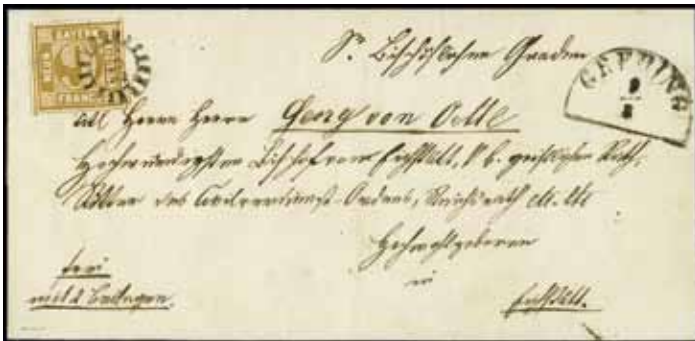 BAYERN
NEUN
FRANCO
GEFRING
9
8
Sr. Bischöflichen Gnaden
Herrn Herrn Georg von Oettl
Hochwürdigsten Bischof von Eichstätt, K. b. geistlichen Rath,
Ritter des Civilverdienst-Ordens, Reichsrath etc. etc
Hochwohlgeboren
frei
in
mit 2 Beilagen.
Eichstätt.